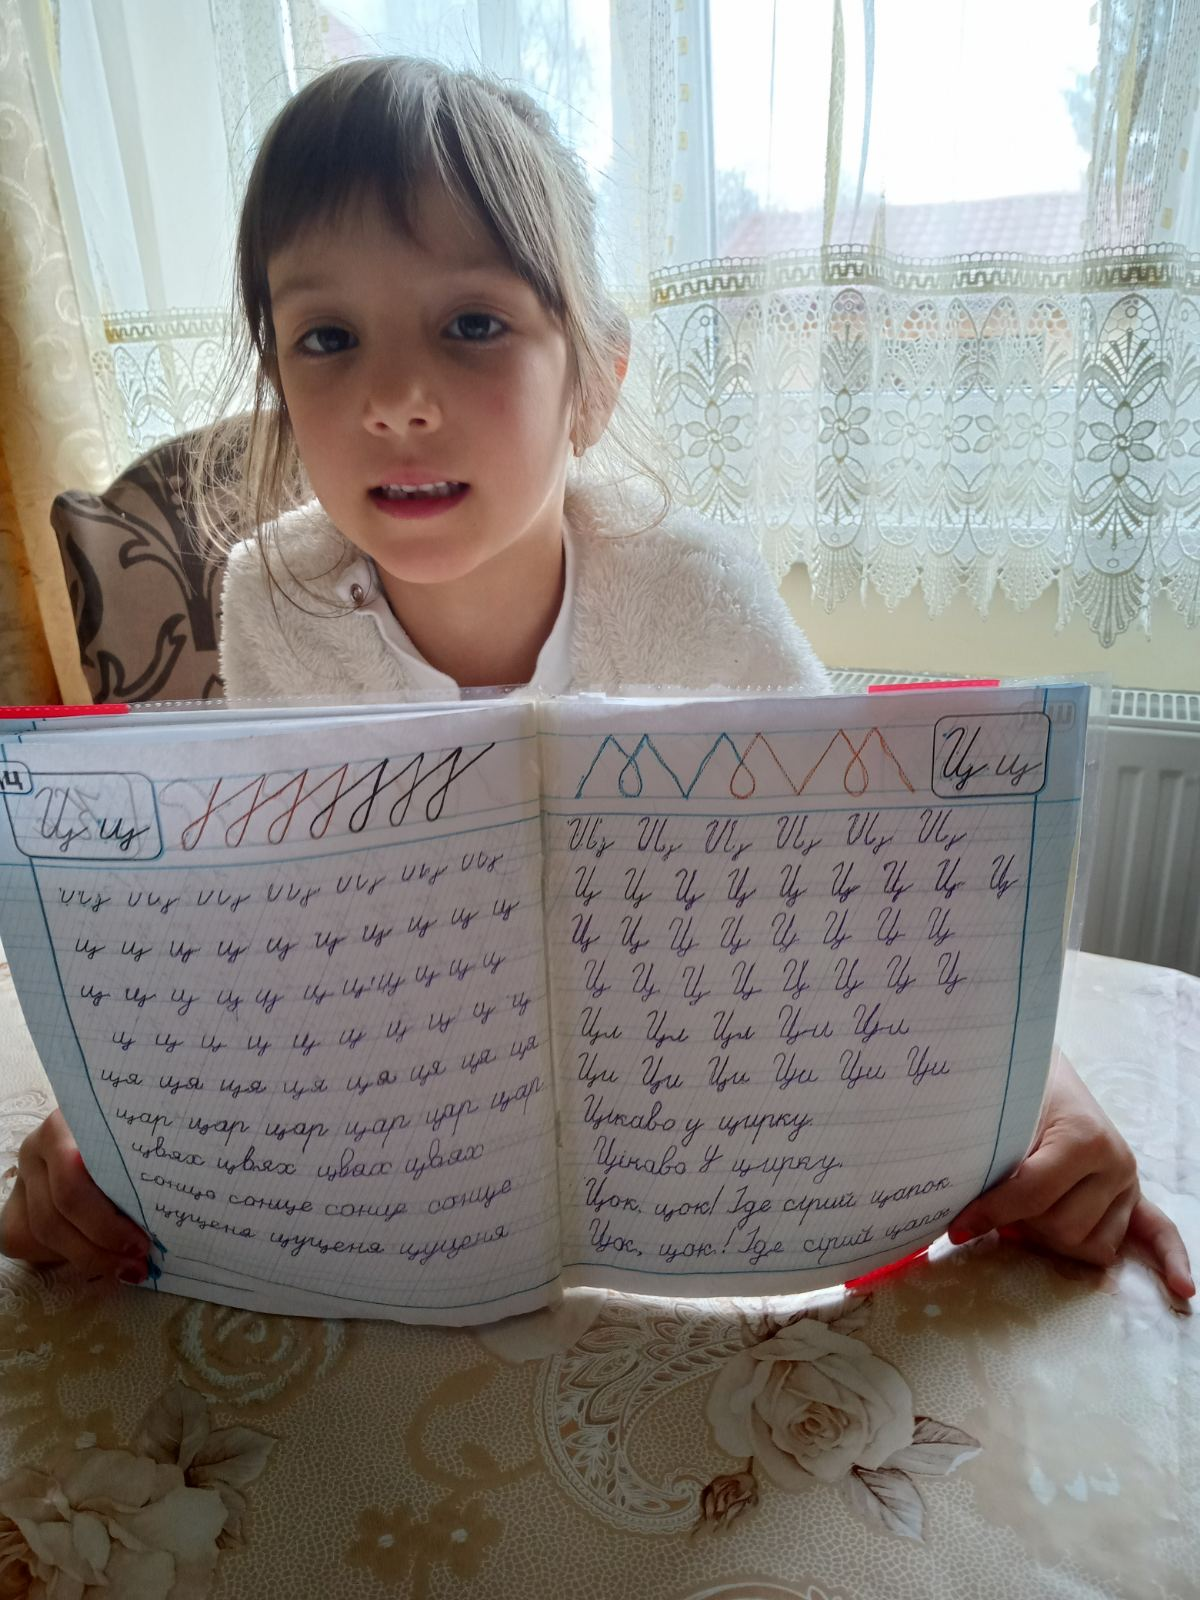 Ц ц
ц ц ц ц ц ц ц ц ц
ц ц ц ц ц ц ц ц ц ц ц
ц ц ц ц ц ц ц ц ц ц
ця ця ця ця ця ця ця
цар цар цар цар цар цар
цвях цвях цвях цвях
сонце сонце сонце сонце
цуценя цуценя цуценя
Ц ц
Ц Ц Ц Ц Ц Ц Ц Ц Ц
Ц Ц Ц Ц Ц Ц Ц Ц
Ц Ц Ц Ц Ц Ц Ц Ц
Ци Ци Ци Ци Ци Ци
Цікаво у цирку.
Цікаво у цирку.
Цок, цок! Іде сірий цапок.
Цок, цок! Іде сірий цапок